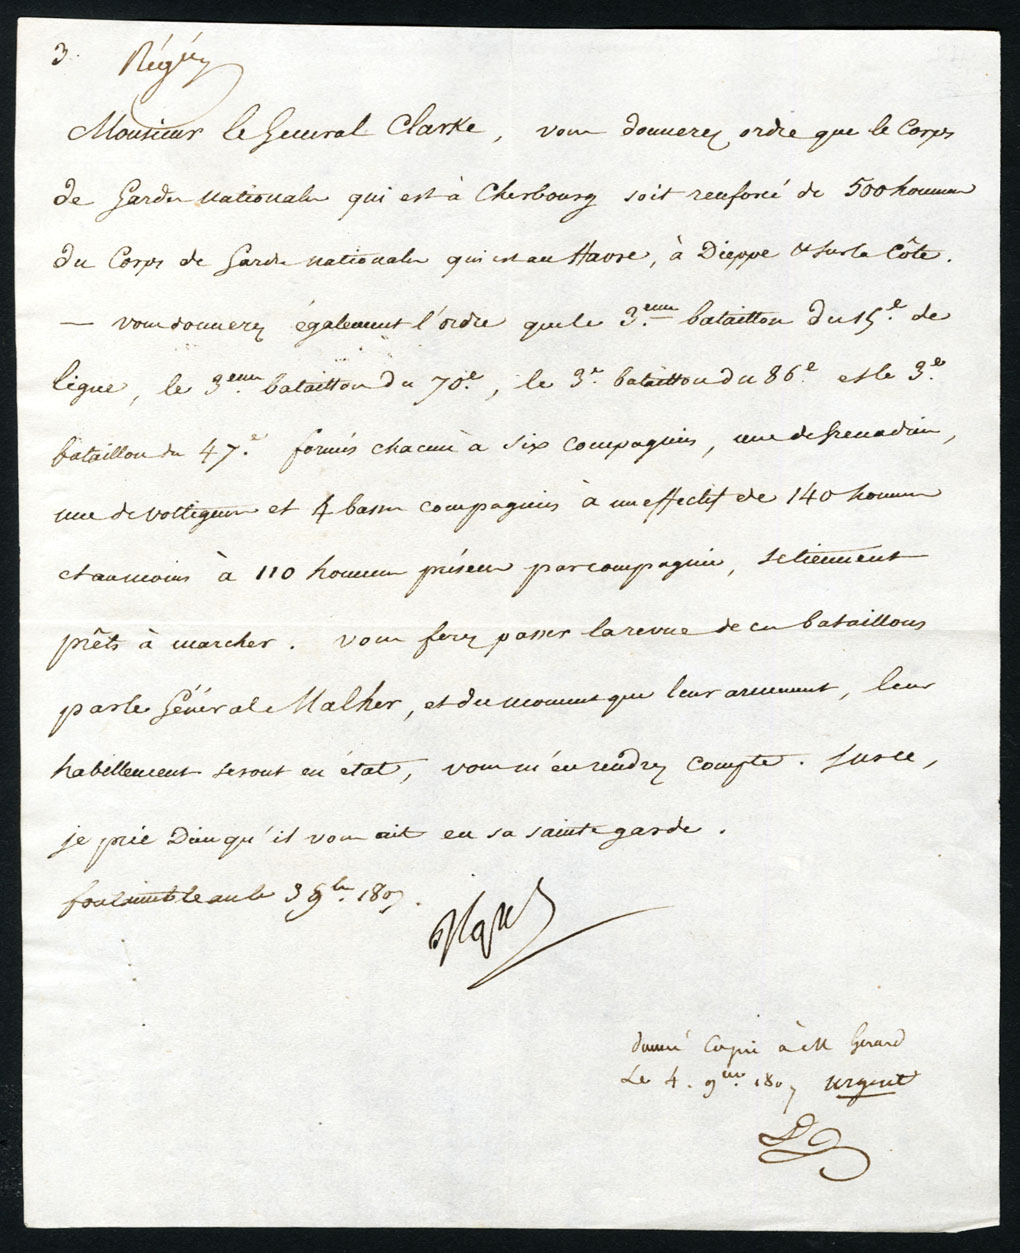 3.
Monsieur le Général Clarke, vous donnerez ordre que le Corps
de Gardes nationales qui est à Cherbourg soit renforcé de 500 hommes
du Corps de Gardes nationales qui est au Havre, à Dieppe & sur la Côte.
— vous donnerez également l'ordre que le 3.eme bataillon du 15.e de
ligne, le 3eme bataillon du 70.e, le 3.e bataillon du 86.e et le 3.e
bataillon du 47.e formés chacun à six compagnies, une de Grenadiers,
une de voltigeurs et 4 basses compagnies à un effectif de 140 hommes
et au moins à 110 hommes présens par compagnie, se tiennent
prêts à marcher. vous ferez passer la revue de ces bataillons
par le Général Malher, et du moment que leur armement, leur
habillement seront en état, vous m'en rendrez compte. Sur ce,
je prie Dieu qu'il vous ait en sa sainte garde.
fontainebleau le 3 9bre. 1807.
donné Copie à M Gérard
Le 4. 9bre. 1807 urgent